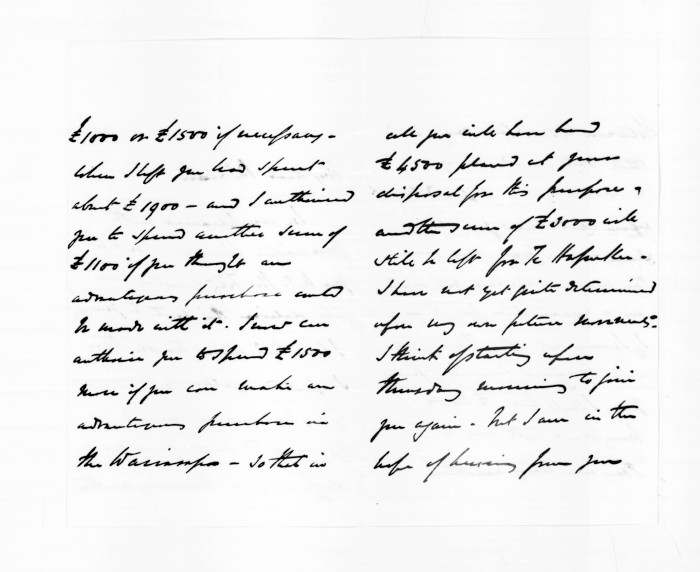 £1000 or £1500 if necessary –
When I left you had spent
about £1900 – and I authorised
you to spend another sum of
£1100 if you thought an
advantageous purchase could
be made with it. I now can
authorise you to spend £1500
more if you can make an
advantageous purchase in
the Wairarapa – So that in
all you will have had
£4500 placed at your
disposal for this purpose &
another sum of £3000 will
still be left for Te Hapuku –
I have not yet quite determined
upon my own future movements –
I think of starting upon
thursday morning to join
you again – but I am in the
hope of hearing from you